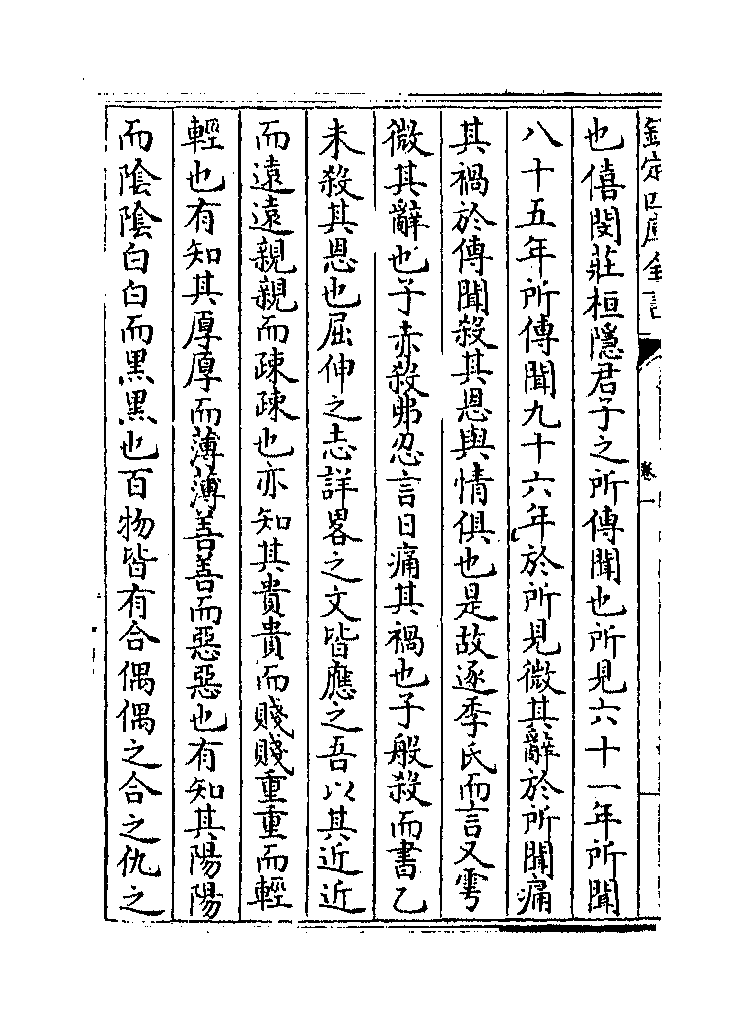 欽定四庫全書
卷一
也僖閔莊桓隱君子之所傳聞也所見六十一年所聞
八十五年所傳聞九十六年於所見微其辭於所聞痛
其禍於傳聞殺其恩與情俱也是故逐季氏而言又雩
微其辭也子赤殺弗忍言日痛其禍也子般殺而書乙
未殺其恩也屈伸之志詳畧之文皆應之吾以其近近
而遠遠親親而疎疎也亦知其貴貴而賤賤重重而輕
輕也有知其厚厚而薄薄善善而惡惡也有知其陽陽
而陰陰白白而黑黑也百物皆有合偶偶之合之仇之